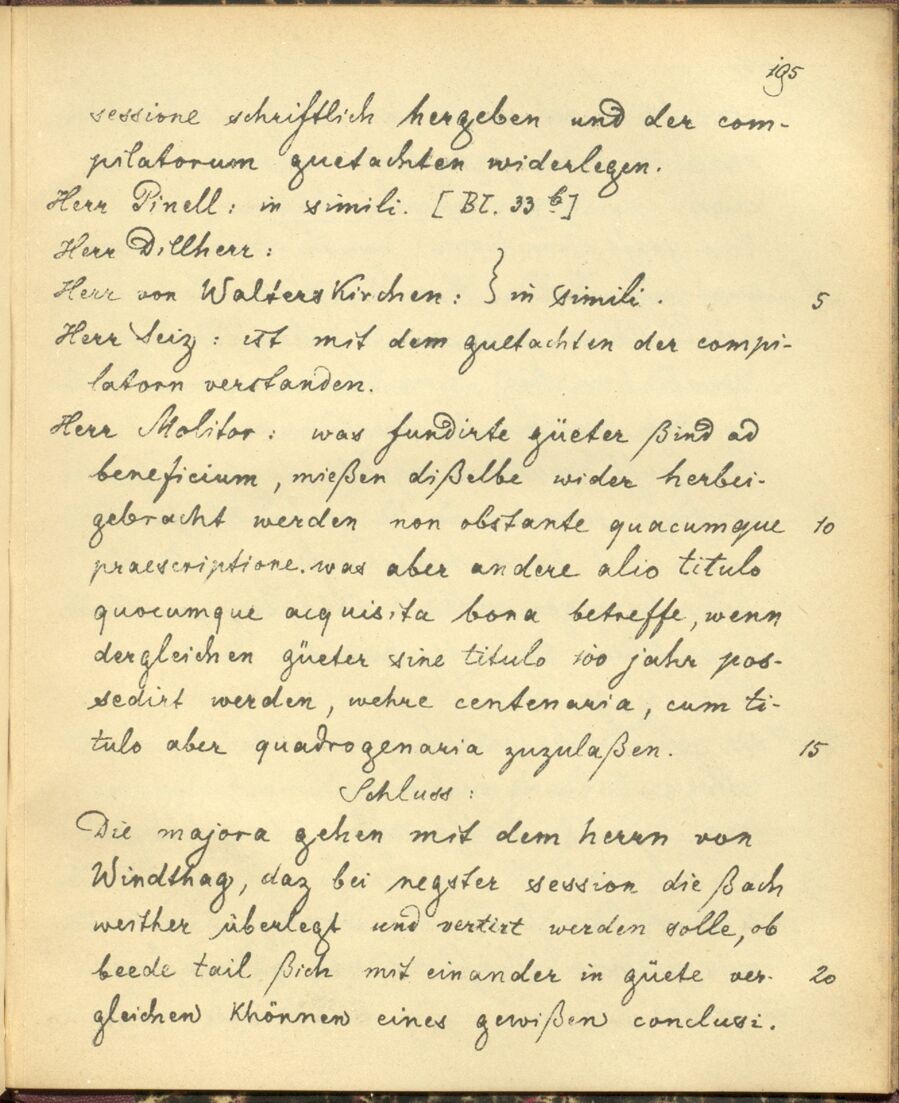 195
sessione schriftlich hergeben und der com-
pilatorum guetachten widerlegen.
Herr Pinell: in simili. [Bl. 33 b]
Herr Dillherr:
Herr von Walterskirchen: } in simili. 5
Herr Seiz: ist mit dem guetachten der compi-
latorn verstanden.
Herr Molitor: was fundirte güeter ßind ad
beneficium, mießen dißelbe wider herbei-
gebracht werden non obstante quacumque 10
praescriptione. was aber andere alio titulo
quocumque acquisita bona betreffe, wenn
dergleichen güeter sine titulo 100 jahr pos-
sedirt werden, wehre centenaria, cum ti-
tulo aber quadrogenaria zuzulaßen. 15
Schluss:
Die majora gehen mit dem herrn von
Windthag, daz bei negster session die ßach
weither überlegt und vertirt werden solle, ob
beede tail ßich mit einander in güete ver- 20
gleichen khönnen eines gewißen conclusi.